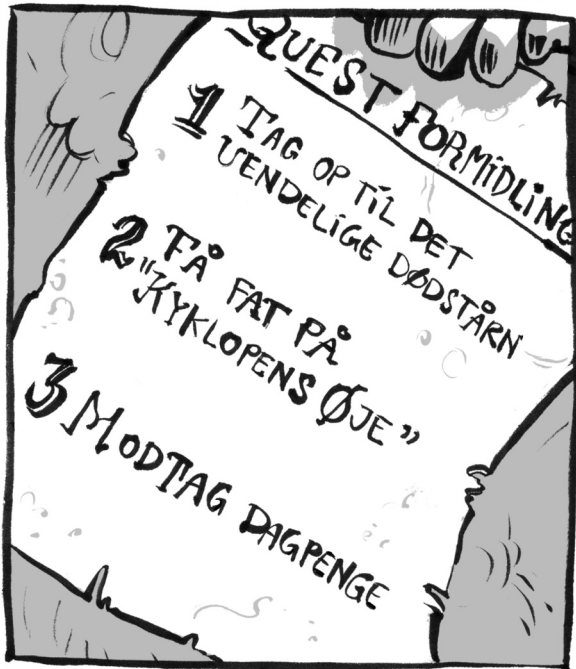 QUEST FORMIDLING
1 TAG OP TIL DET
UENDELIGE DØDSTÅRN
2 FÅ FAT PÅ
"KYKLOPENS ØJE"
3 MODTAG DAGPENGE